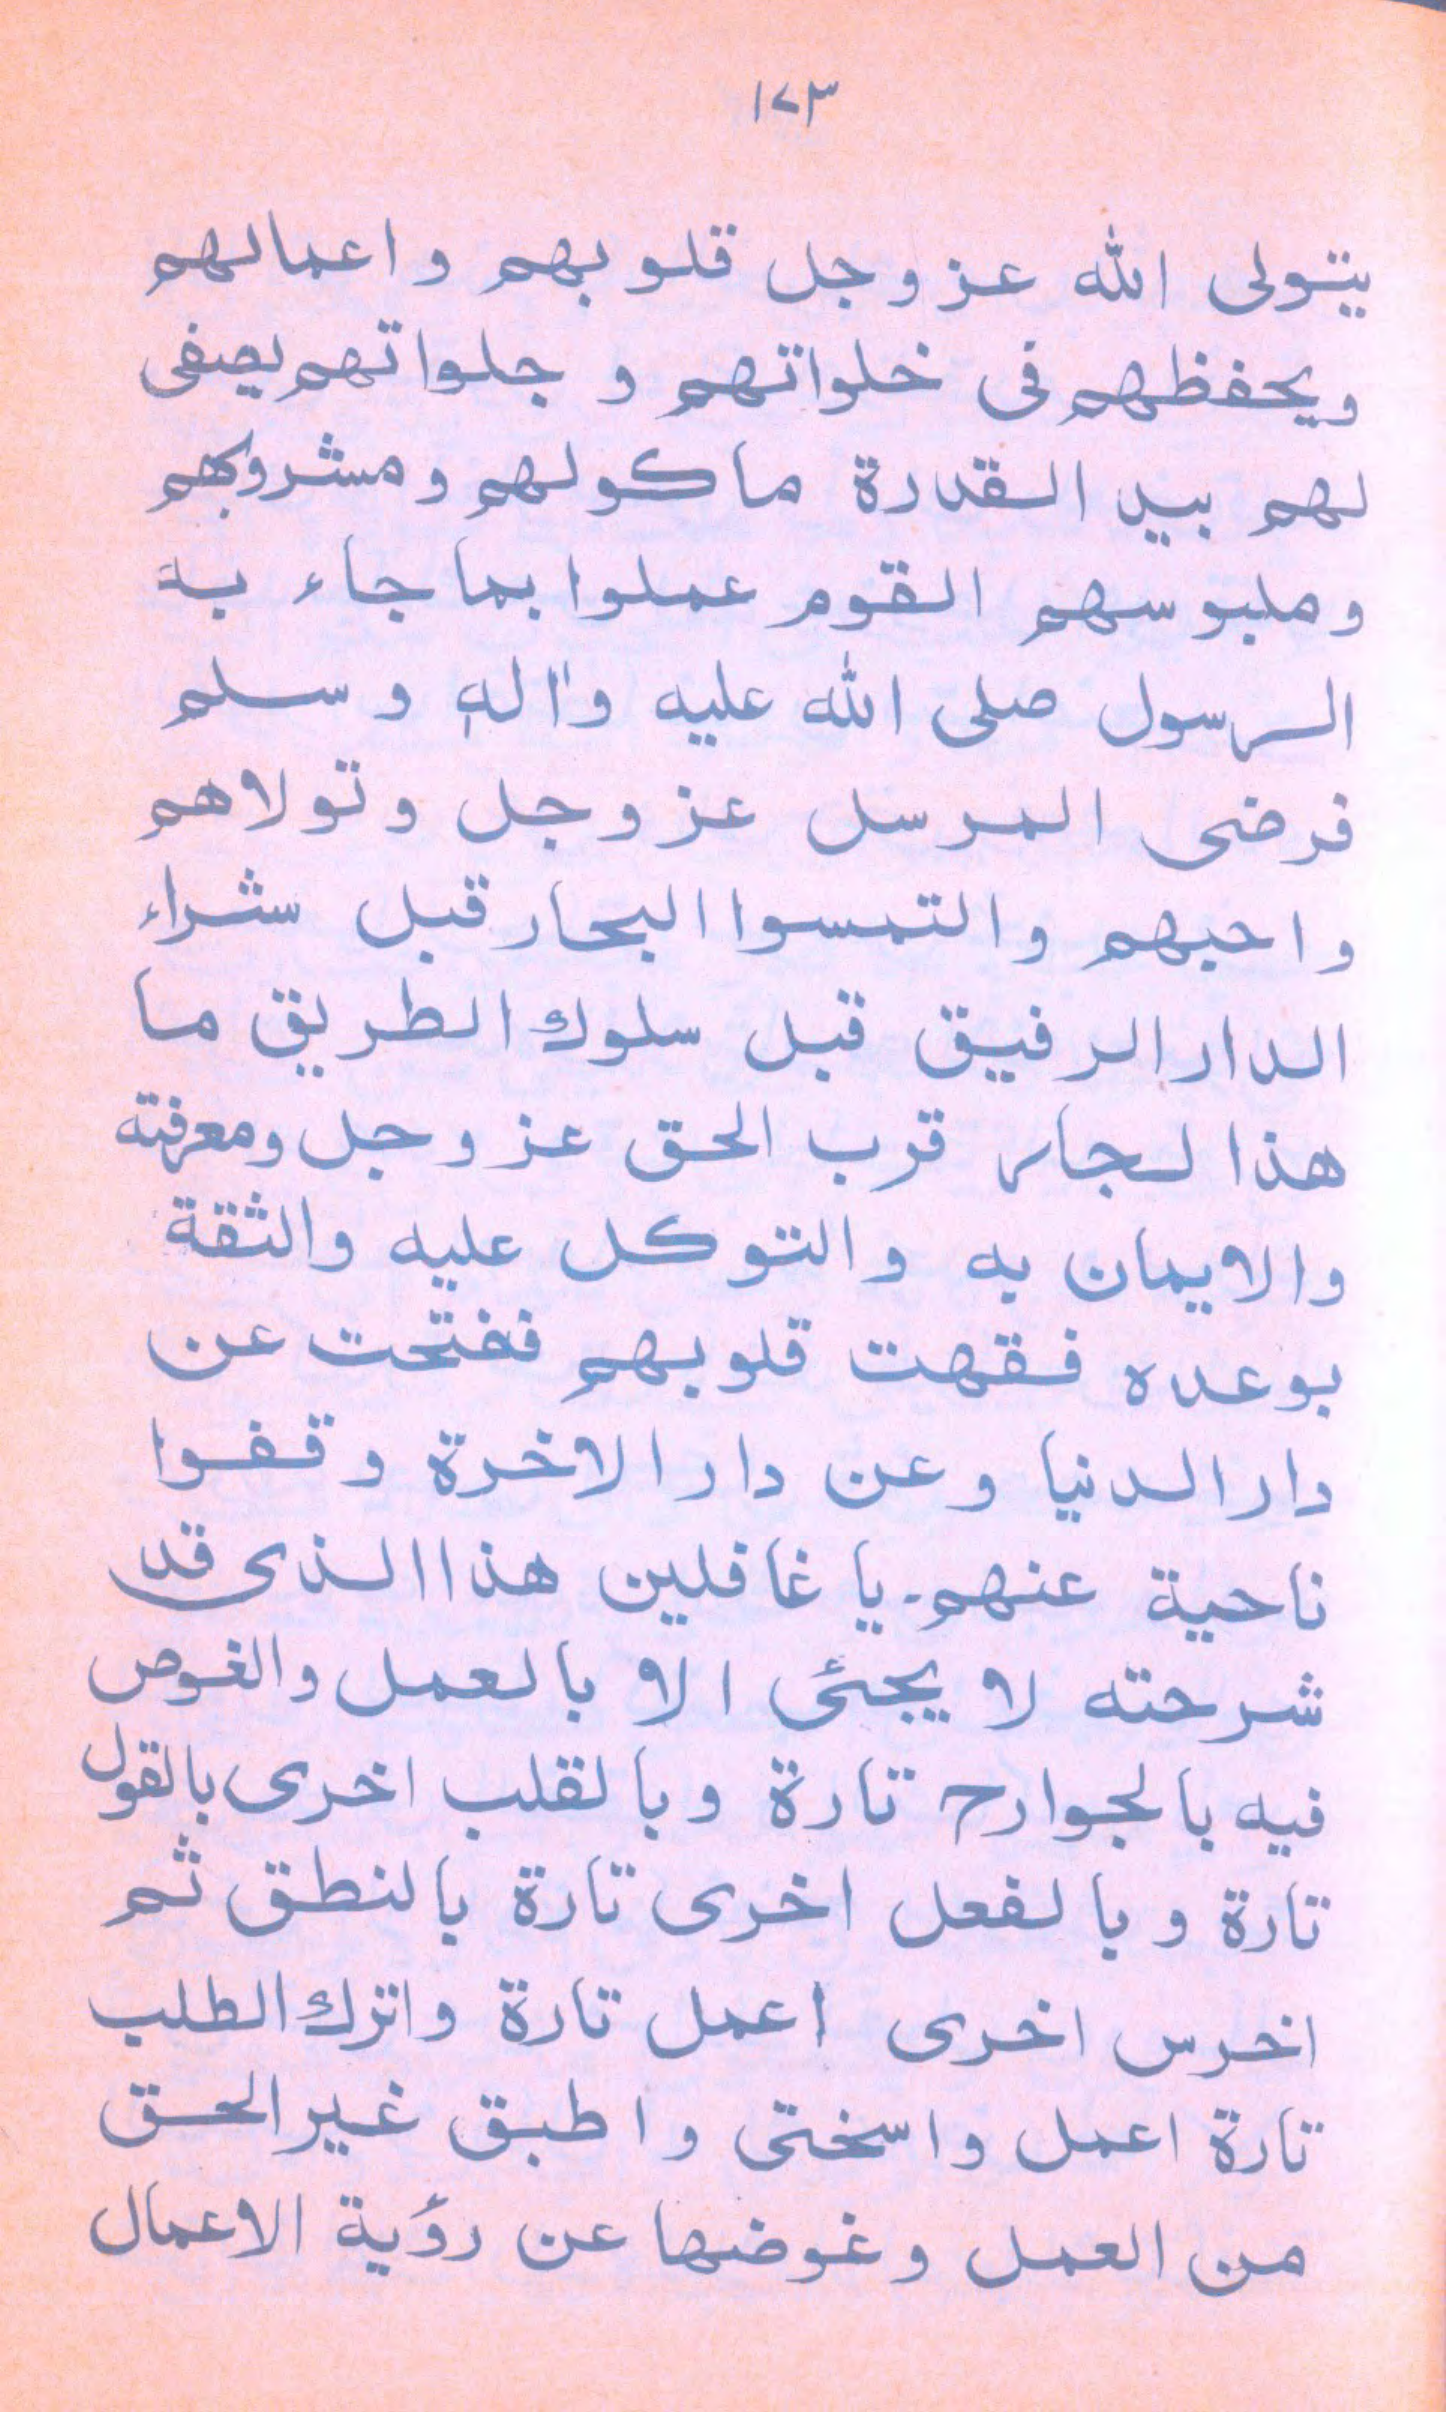 ١٧٣
يتولى الله عز وجل قلوبهم واعمالهم
ويحفظهم فى خلواتهم و جلواتهم يصفى
لهم بيد القدرة ماكولهم ومشروبهم
وملبوسهم القوم عملوا بما جاء به
الرسول صلى الله عليه واٰله وسلم
فرضى المرسل عز وجل وتولاهم
واحبهم والتمسوا البحار قبل شراء
الدار الرفيق قبل سلوك الطريق ما
هذا لجار قرب الحق عز وجل ومعرفته
والايمان به والتوكل عليه والثقة
بوعده فقهت قلوبهم ففتحت عن
دار الدنيا وعن دار الاخرة وقفوا
ناحية عنهم۔ يا غافلين هذا الذى قد
شرحته لا يجئى الا بالعمل والغوص
فيه بالجوارح تارة وبالقلب اخرى بالقول
تارة وبالفعل اخرى تارة بالنطق ثم
اخرس اخرى اعمل تارة واترك الطلب
تارة اعمل واسختى واطبق غير الحق
من العمل وغوضها عن رؤية الاعمال